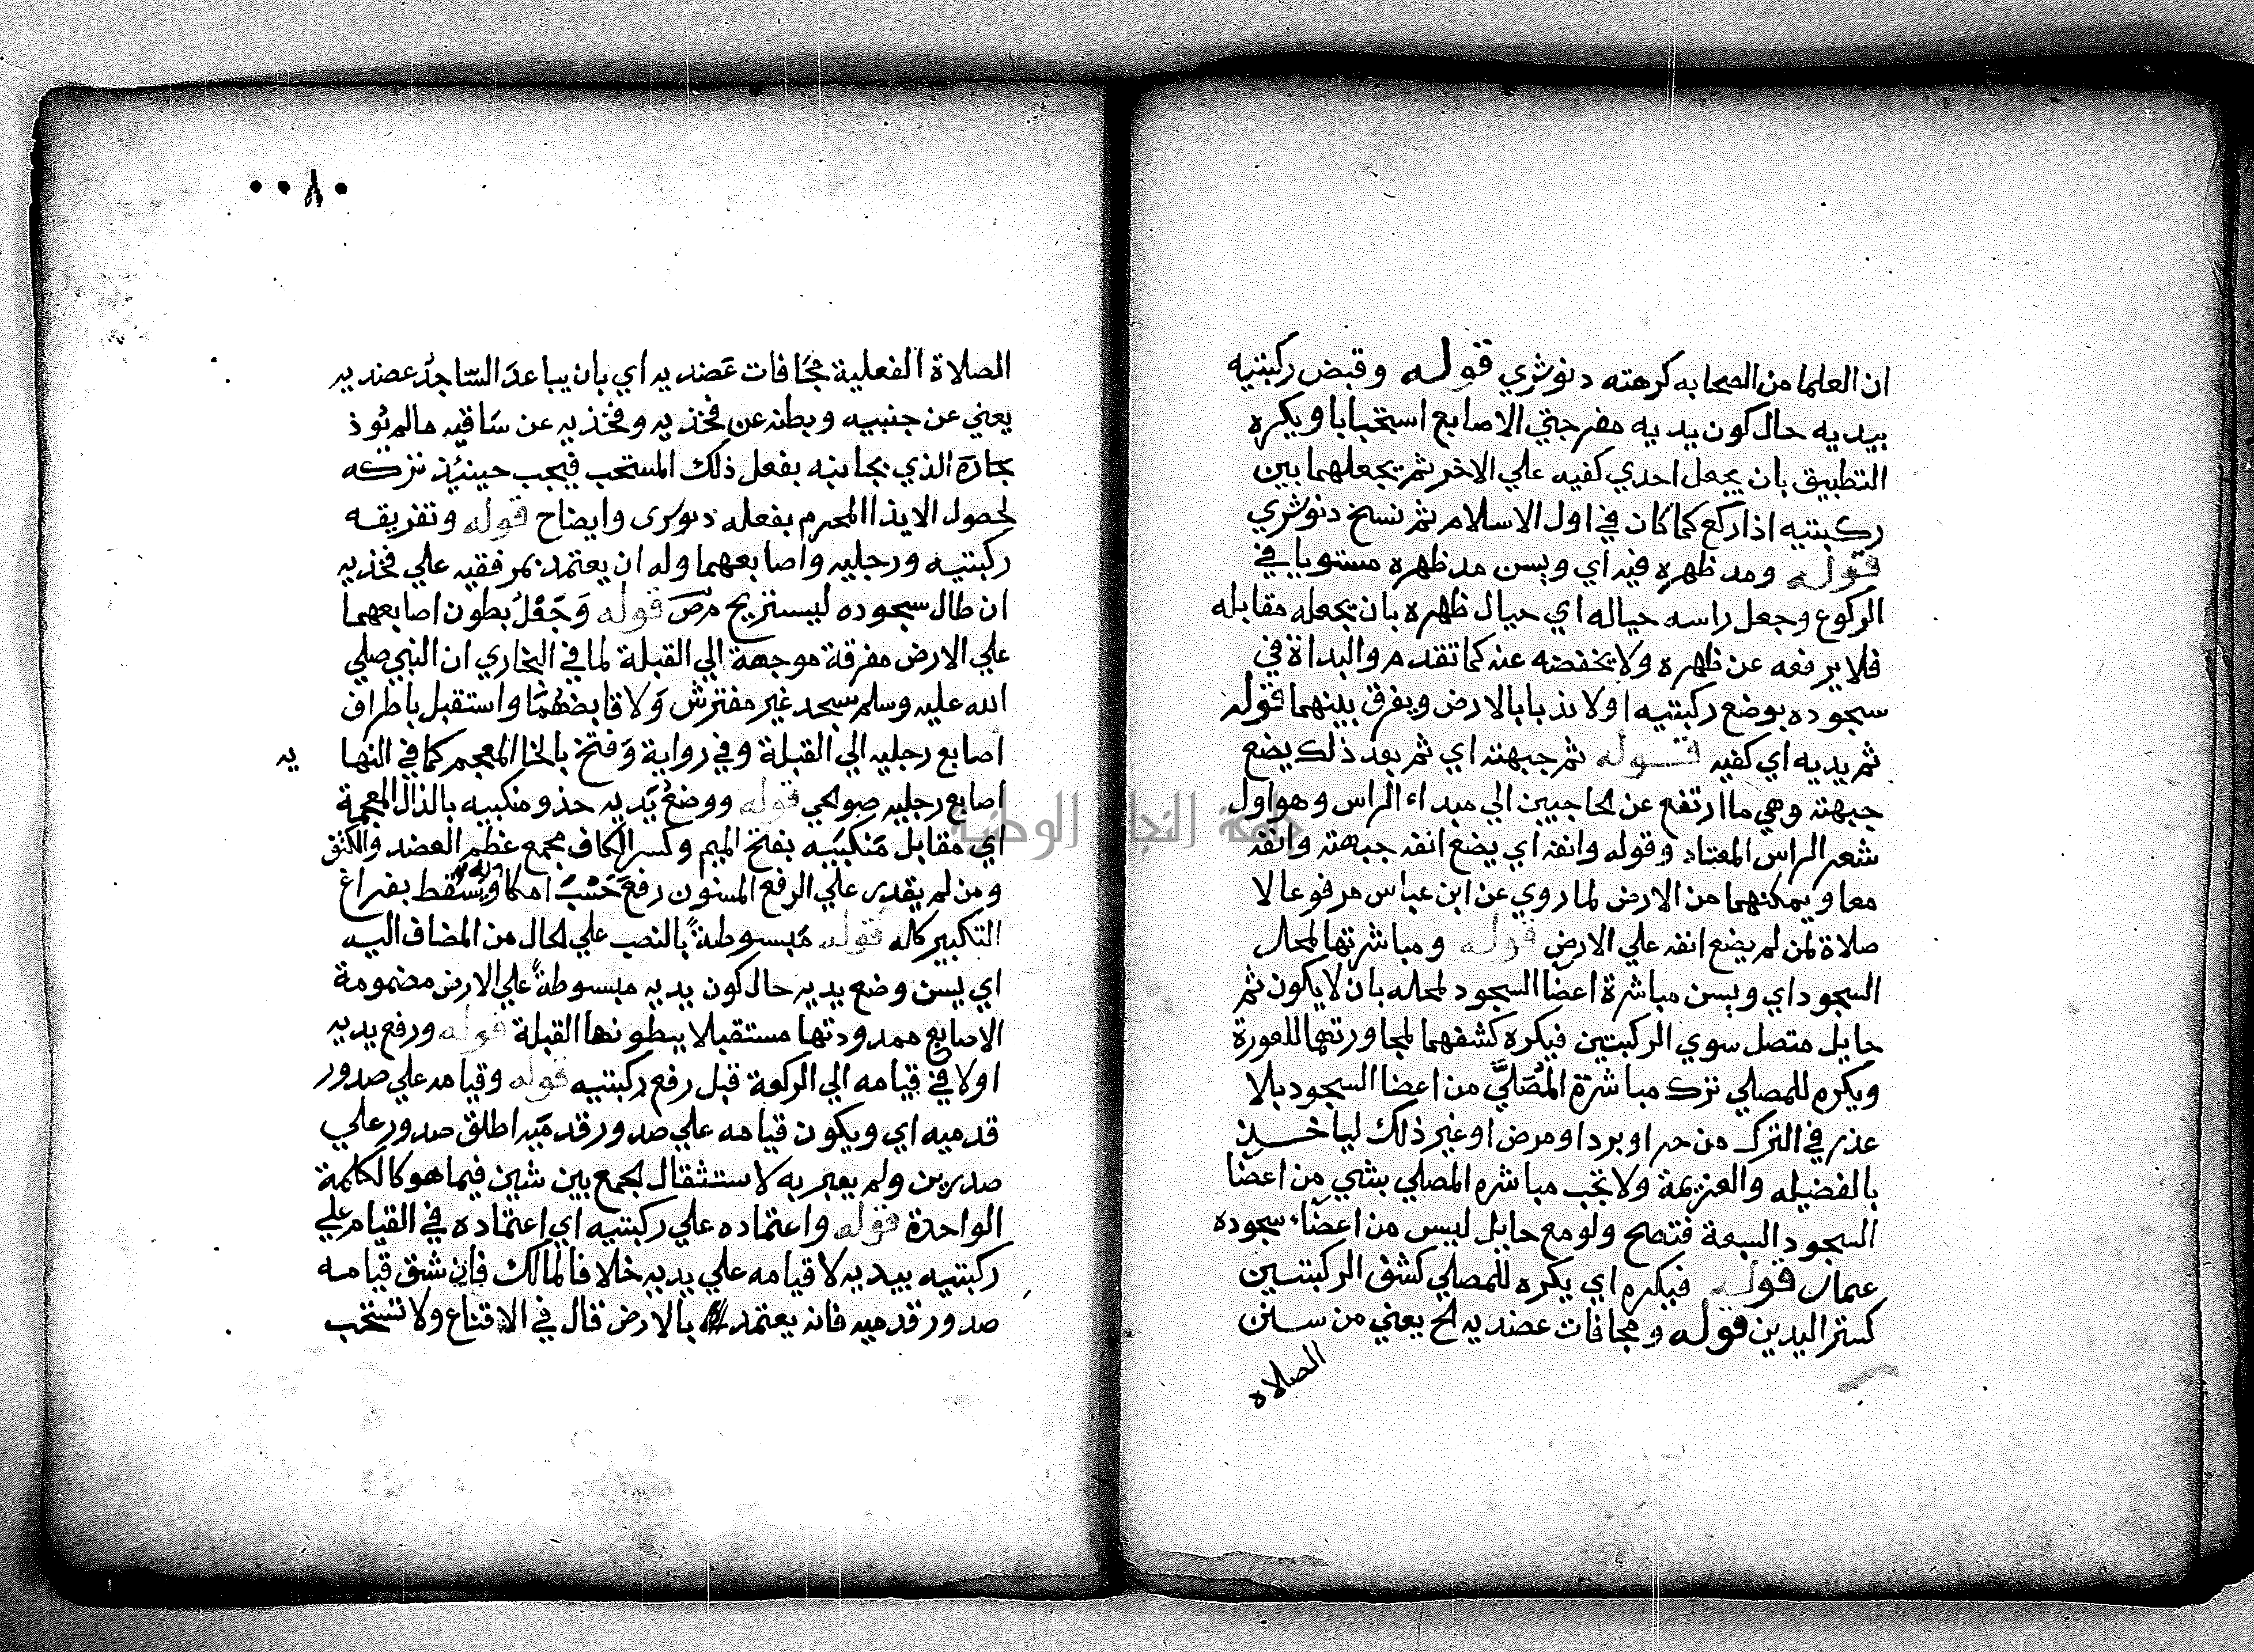 ان العلما من الصحابه كرهته دنوشري قوله وقبض ركبتيه
بيديه حال كون يديه مفرجتي الاصابع استحبابا ويكره
التطبيق بان يجعل احدي كفيه علي الاخر ثم يجعلهما بين
ركبتيه اذا ركع كما كان في اول الاسلام ثم نسخ دنوشري
قوله ومد ظهره فيه اي ويسن مد ظهره مستويا في
الركوع وجعل راسه حياله اي حيال ظهره بان يجعله مقابله
فلا يرفعه عن ظهره ولا يخفضه عنه كما تقدم والبداة في
سجوده بوضع ركبتيه اولا ندبا بالارض ويفرق بينهما قوله
ثم يديه اي كفيه قوله ثم جبهته اي ثم بعد ذلك يضع
جبهته وهي ما ارتفع عن لحاجبين الي مبداء الراس وهو اول
شعر الراس المعتاد وقوله وانفه اي يضع انفه جبهته وانفه
معا ويمكنهما من الارض لما روي عن ابن عباس مرفوعا لا
صلاة لمن لم يضع انفه علي الارض قوله ومباشرتها لمحل
السجود اي ويسن مباشرة اعضا السجود لمحله بان لا يكون ثم
حايل متصل سوي الركبتين فيكره كشفهما لمجاورتهما للعورة
ويكره للمصلي ترك مباشرة المُصَلَّي من اعضا السجود بلا
عذر في الترك من حر او برد او مرض او غير ذلك لياخـــذ
بالفضيله والعزيمة ولا تجب مباشره المصلي بشي من اعضا
السجود السبعة فتصح ولو مع حايل ليس من اعضاء سجوده
عمار قوله فيكره اي يكره للمصلي كشف الركبتين
كستر اليدين قوله ومجافات عضديه لخ يعني من سنن
الصلاه
٠٠٨٠
الصلاة الفعلية مجَافات عَضديه اي بان يباعدَ السَّاجدُ عضديه
يعني عن جنبيه وبطنه عن فخذيه وفخذيه عن سَاقيه مالم يُوذ
جارَه الذي بجانبه بفعل ذلك المستحب فيجب حينئذ تركه
لحصول الايذا المحرم بفعله دنوشرى وايضاح قوله وتفريقه
ركبتيه ورجليه واصابعهما وله ان يعتمد بمرفقيه علي فخذيه
ان طال سجوده ليستريح مرّصَ قوله وَجَعْلُ بطون اصابعهما
علي الارض مفرقة موجهة الي القبلة لما في البخاري ان النبي صلي
الله عليه وسلم سجد غير مفترش وَلا قابضهُمَا واستقبل باطراف
اصابع رجليه الي القبلة وفي رواية وَفتخ بالخا المعجم كما في النها يه
اصابع رجليه صوالحي قوله ووضعُ يَديه حذو منكبيه بالذال المعجمة
اي مقابل مَنكبَيه بفتح الميم وكسر الكاف مجمع عظم العضد والكتف
ومن لم يقدر علي الرفع المسنون رفعَ حَسْبَ امكا ويسقط بفراغ
التكبير كله قوله مَبسوطةً بالنصب علي لحال من المضاف اليه
اي يسن وضع يديه حال كون يديه مبسوطةً علي الارض مضمومة
الاصابع ممدودتها مستقبلا ببطونها القبلة قوله ورفع يديه
اولا في قيامه الي الركعة قبل رفع ركبتيه قوله وقيامه علي صدور
قدميه اي ويكون قيامه علي صدور قدمَيه اطلق صدور علي
صدرين ولم يعبر به لاستثقال لجمع بين شين فيما هو كالكلمة
الواحدة قوله واعتماده علي ركبتيه اي اعتماده في القيام علي
ركبتيه بيديه لا قيامه علي يديه خلافا لمالك فان شق قيامه
صدور قدميه فانه يعتمد بالارض قال في الاقناع ولا تستحب